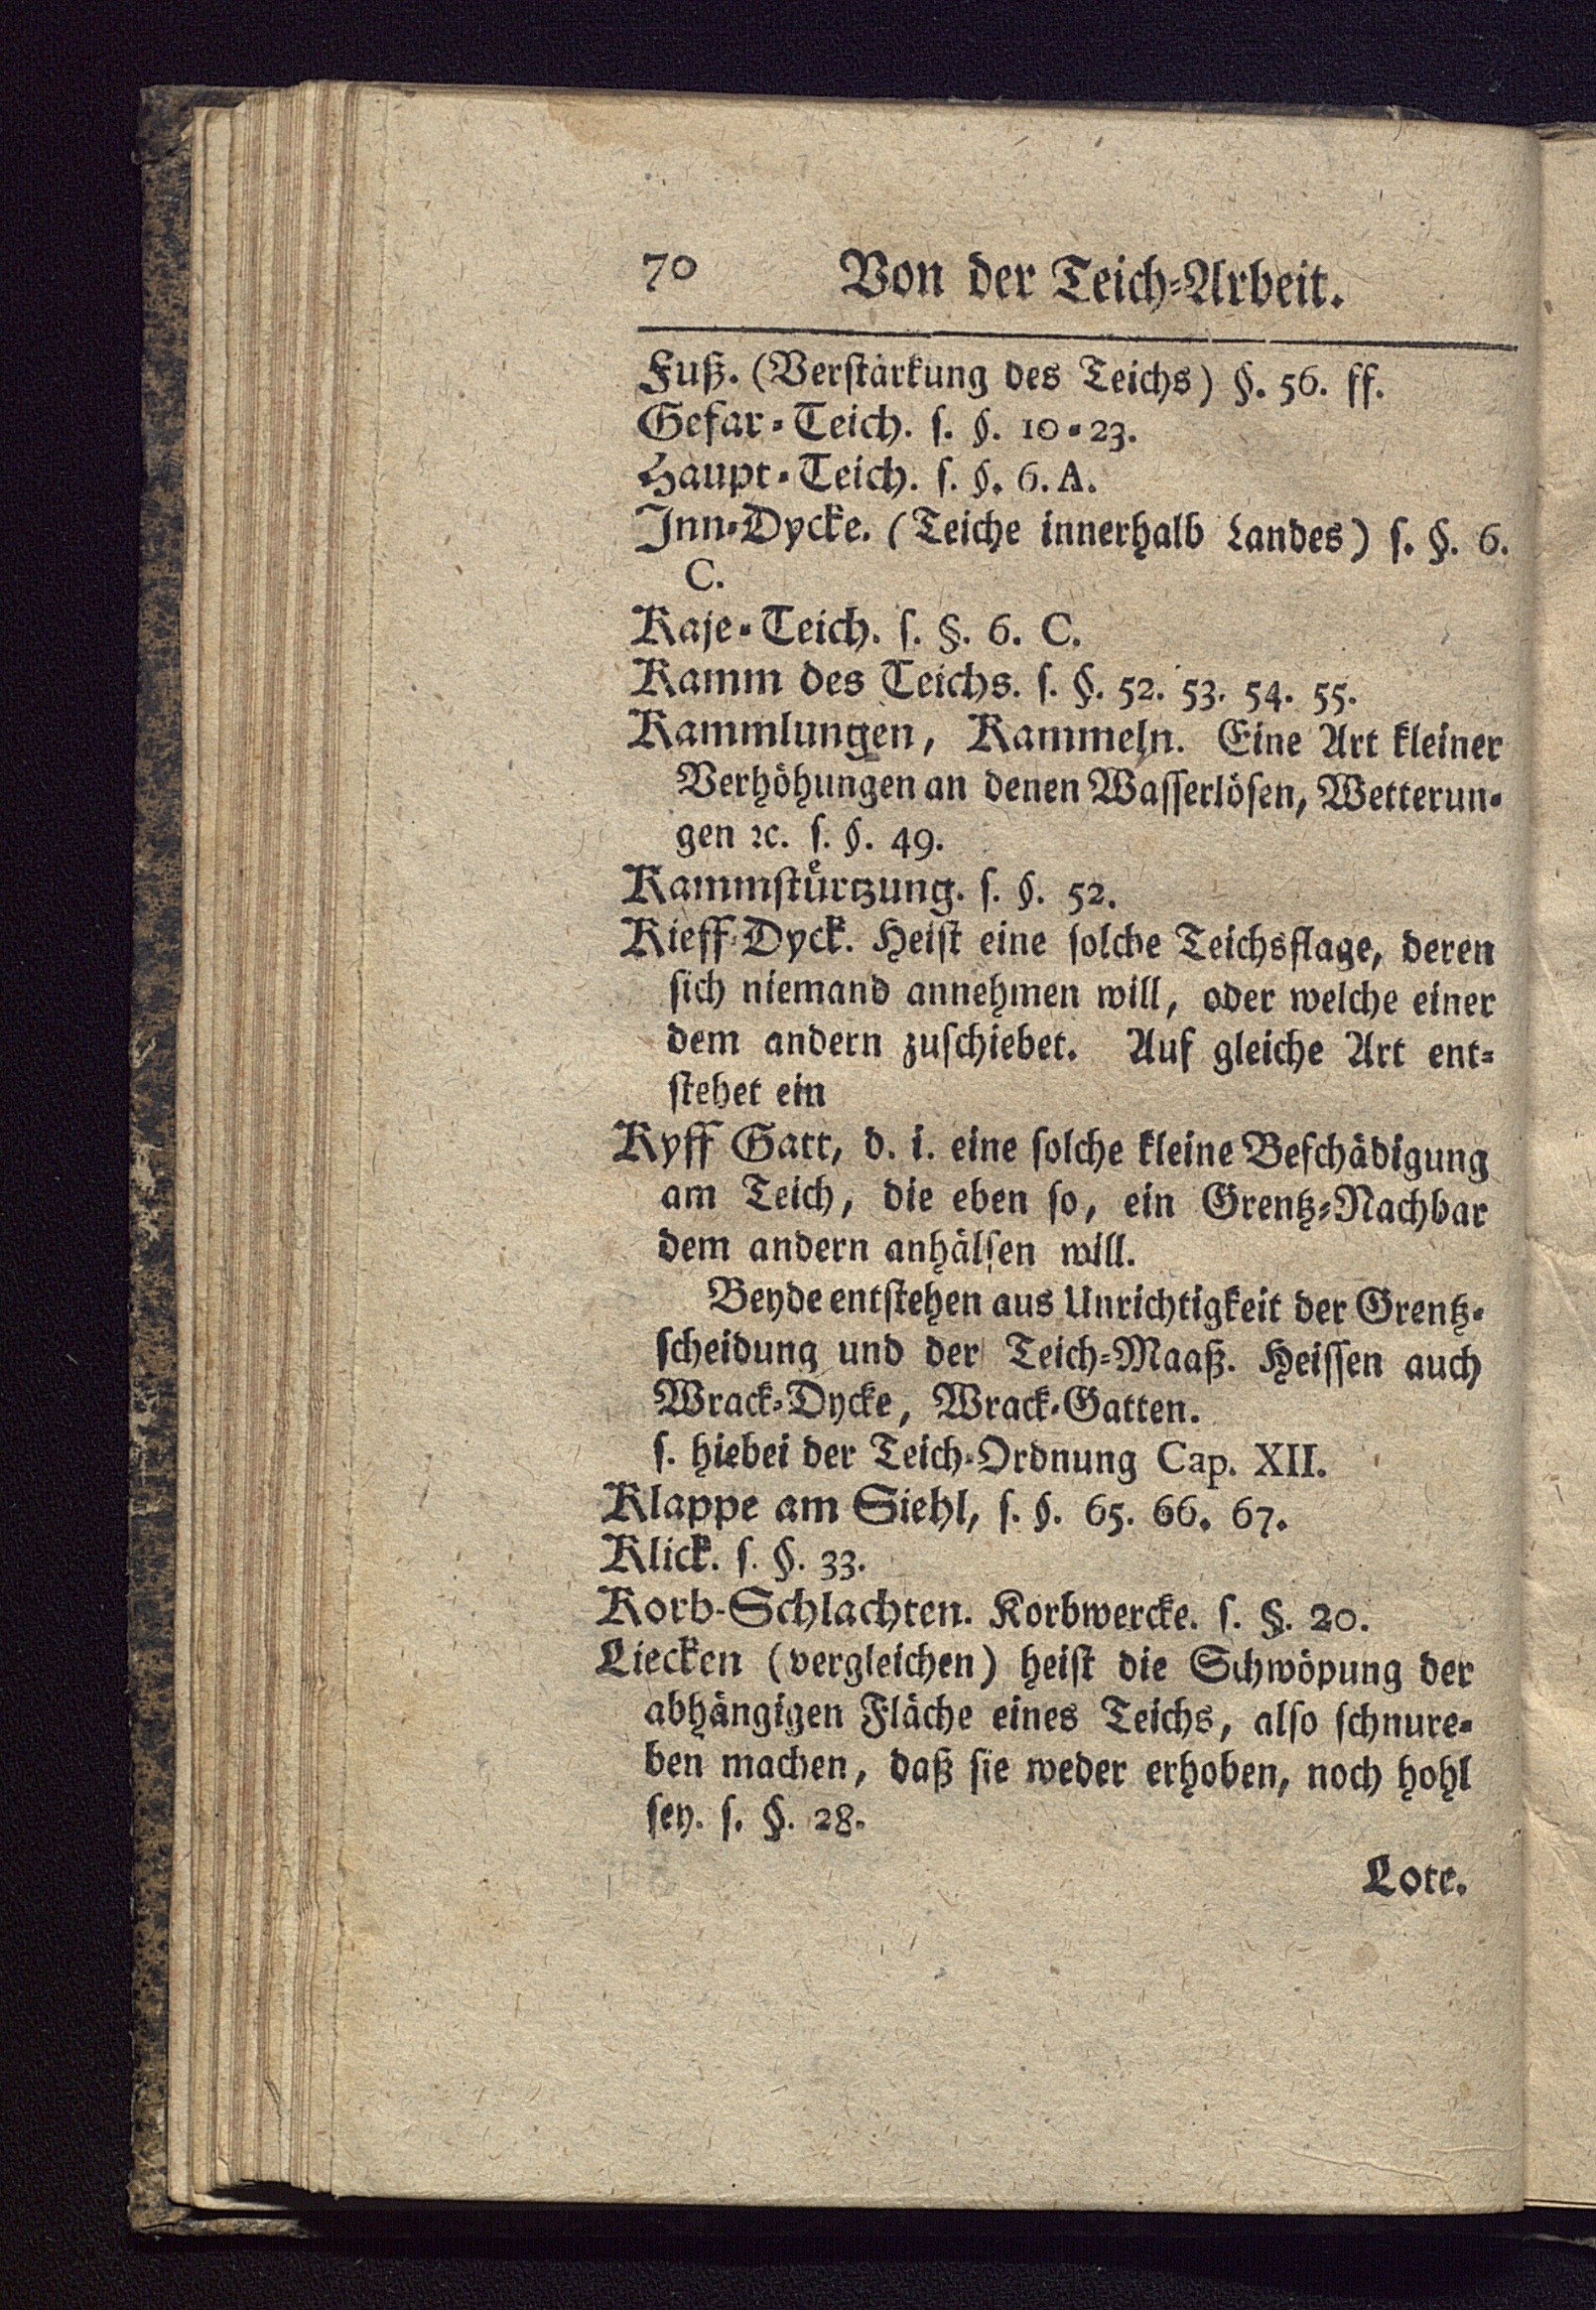 70 Von der Teich-Arbeit.
Fuß. (Verstärkung des Teichs) §. 56. ff.
Gefar-Teich. s. §. 10-23.
Haupt-Teich. s. §. 6. A.
Inn-Dycke. (Teiche innerhalb Landes) s. §. 6.
C.
Kaje-Teich. s. §. 6. C.
Kamm des Teichs. s. §. 52. 53. 54. 55.
Kammlungen, Kammeln. Eine Art kleiner
Verhöhungen an denen Wasserlösen, Wetterun-
gen ꝛc. s. §. 49.
Kammstürtzung. s. §. 52.
Kieff-Dyck. Heist eine solche Teichsflage, deren
sich niemand annehmen will, oder welche einer
dem andern zuschiebet. Auf gleiche Art ent-
stehet ein
Kyff Gatt, d. i. eine solche kleine Beschädigung
am Teich, die eben so, ein Grentz-Nachbar
dem andern anhälsen will.
Beyde entstehen aus Unrichtigkeit der Grentz-
scheidung und der Teich-Maaß. Heissen auch
Wrack-Dycke, Wrack-Gatten.
s. hiebei der Teich-Ordnung Cap. XII.
Klappe am Siehl, s. §. 65. 66. 67.
Klick. s. §. 33.
Korb-Schlachten. Korbwercke. s. §. 20.
Liecken (vergleichen) heist die Schwöpung der
abhängigen Fläche eines Teichs, also schnure-
ben machen, daß sie weder erhoben, noch hohl
sey. s. §. 28.
Lote.